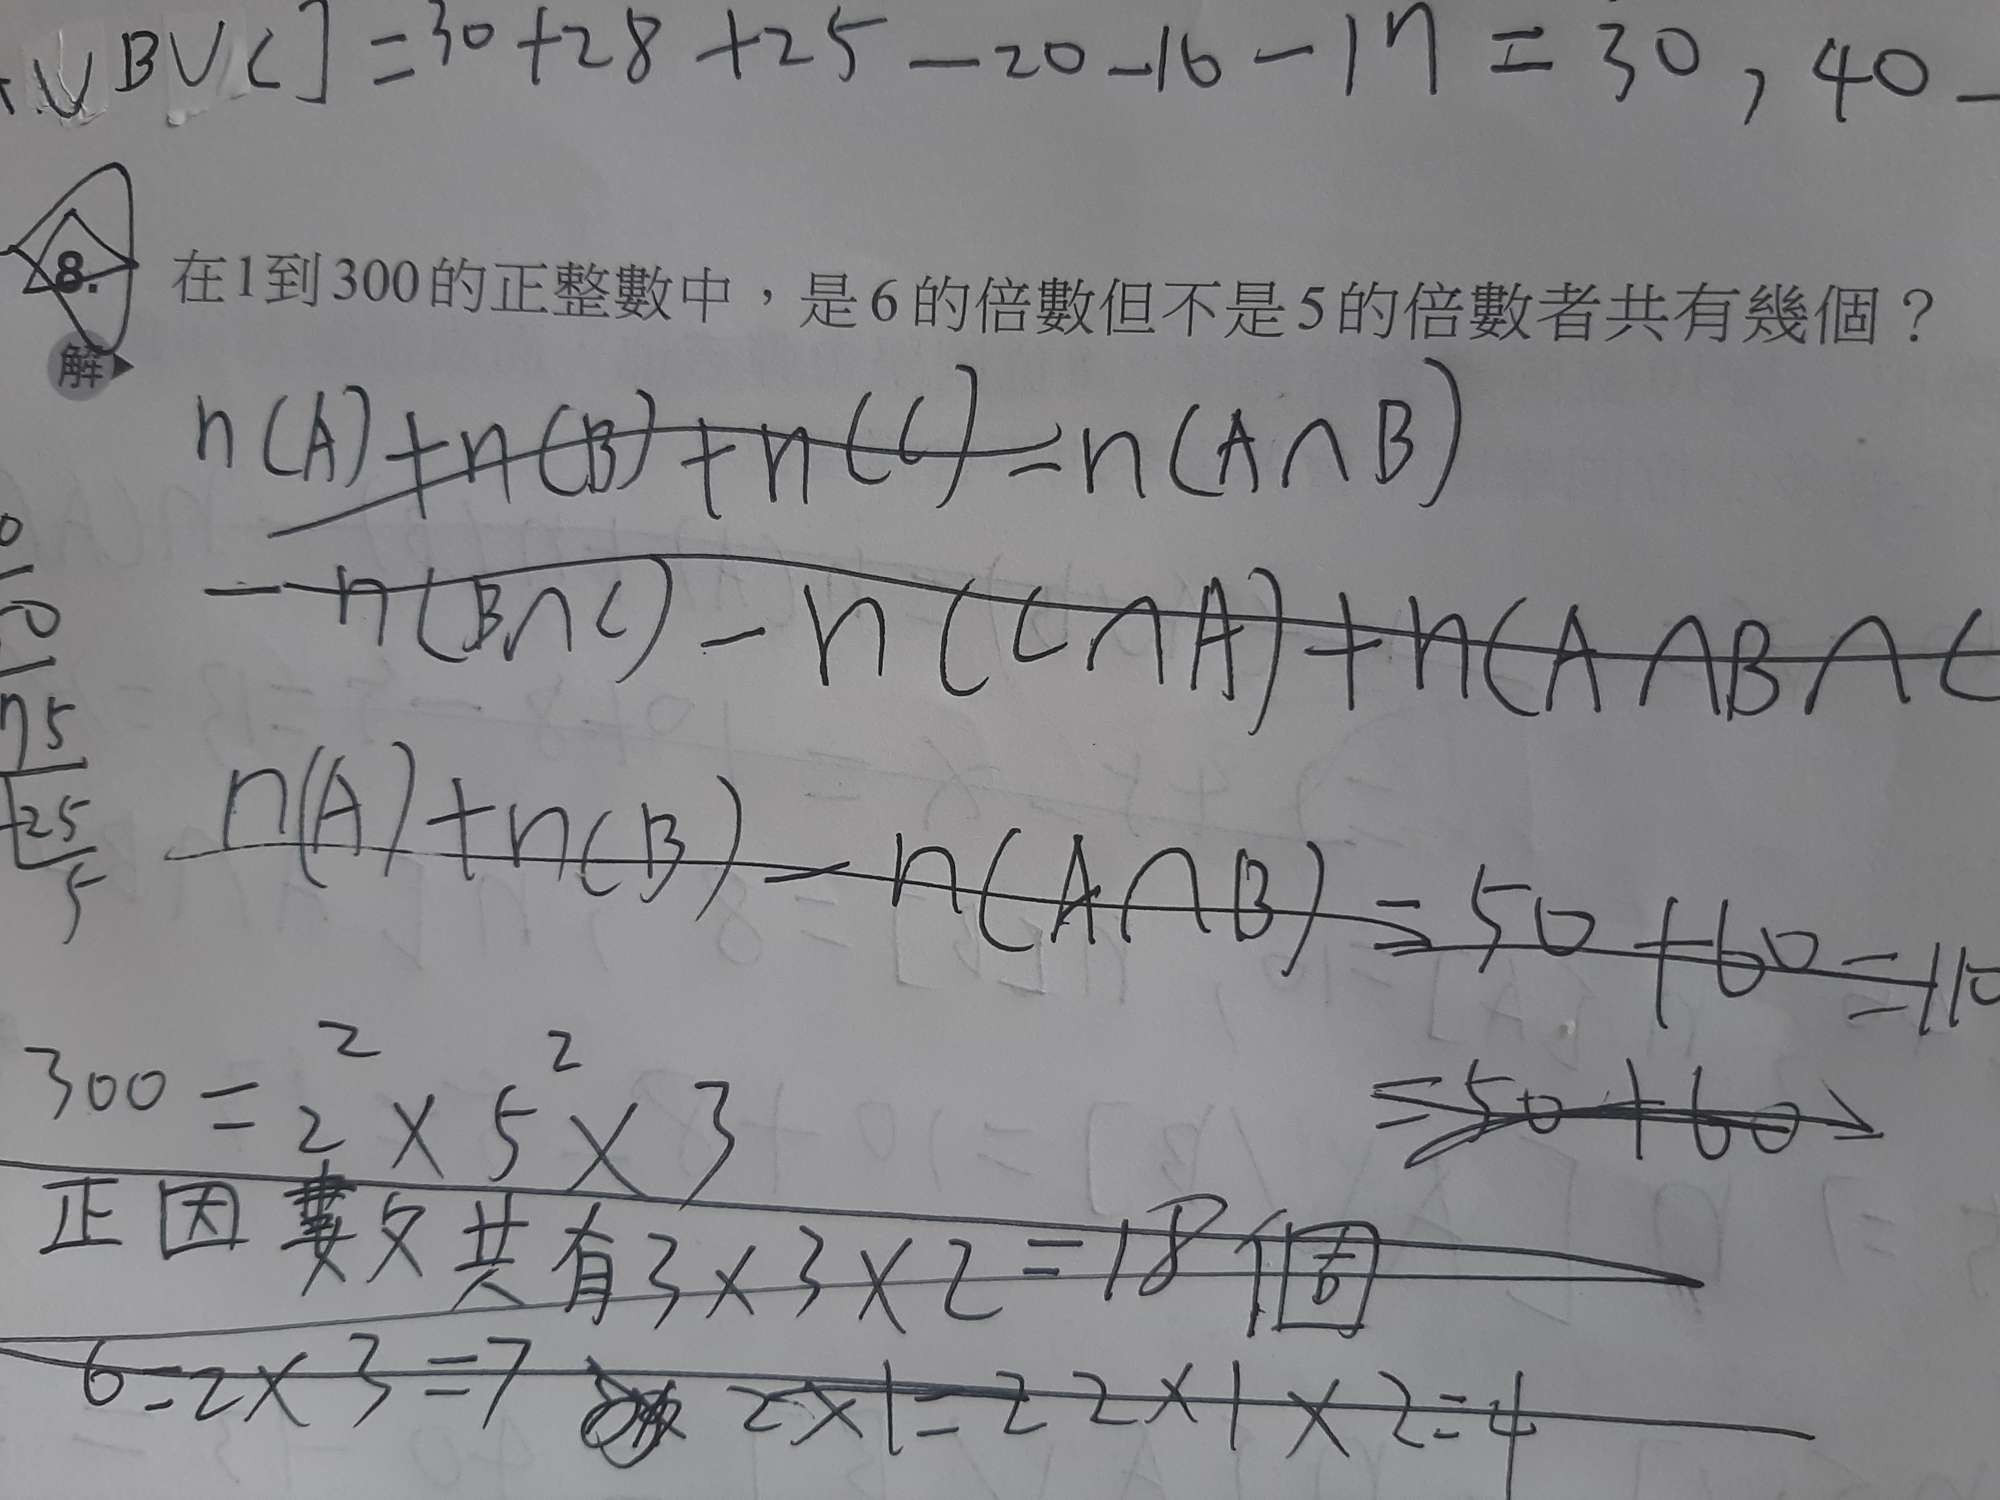 ∪B∪C] = 30+28+25-20-16-17 = 30, 40-
8. 在1到300的正整數中，是6的倍數但不是5的倍數者共有幾個？
解
n(A)+n(B)+n(C)=n(A∩B)
-n(B∩C)-n(C∩A)+n(A∩B∩C
75
25
5
n(A)+n(B)-n(A∩B)=50+60=110
=50+60
300=2²×5²×3
正因數共有3×3×2=18個
6=2×3=7 2×1=2 2×1×2=4